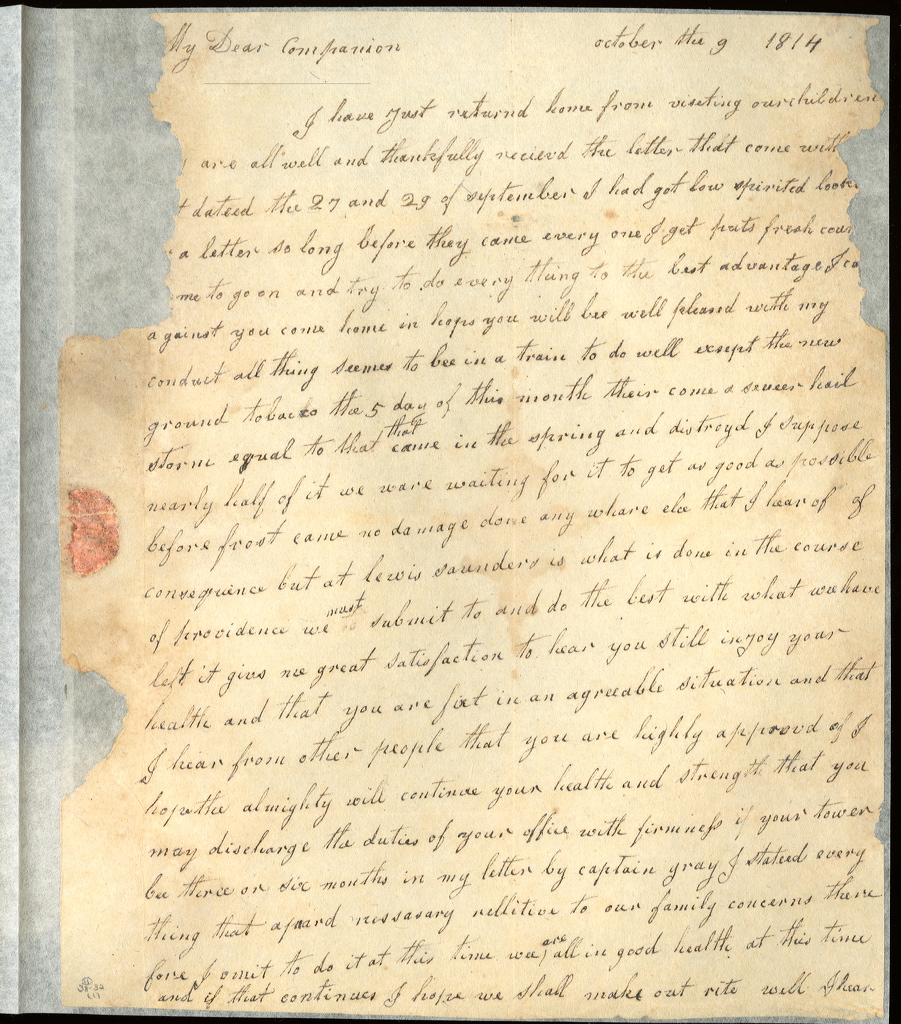 My Dear Companion october the 9 1814
I have Just returnd home from viseting our children
are all well and thankfully recievd the letter that come with
dateed the 27 and 29 of september I had got low spirited
a letter so long before they came every one I get puts fresh
me to go on and try to do every thing to the best advantage I
against you come home in hops you will bee well pleased with my
conduct all thing seemes to bee in a train to do well exsept the new
ground tobacco the 5 day of this month their come a seveer hail
storm equal to that that came in the spring and distroyd I suppose
nearly half of it we ware waiting for it to get as good as possible
before frost came no damage done any whare else that I hear of of
consequence but at lewis saunders is what is done in the course
of providence we must submit to and do the best with what we have
left it givs me great satisfaction to hear you still injoy your
health and that you are fixt in an agreeable situation and that
I hear from other people that you are highly approovd of I
hope the almighty will continue your health and strength that you
may discharge the duties of your office with firmness if your tower
bee three or six months in my letter by captain gray I stateed every
thing that apeard nessasary rellitive to our family concerns there
fore I omit to do it at this time wee are all in good health at this time
and if that continues I hope we shall make out rite well I hear